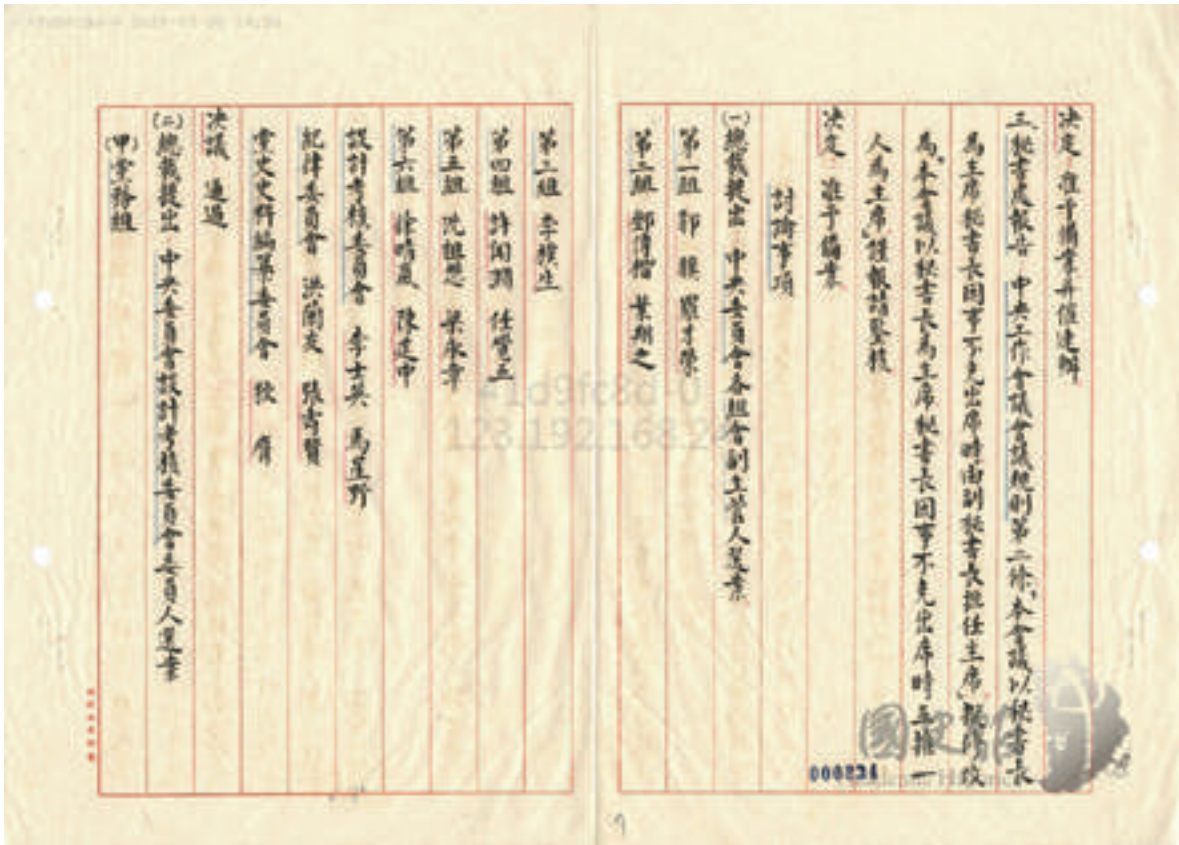 決定 准予備案并催速辦
三、秘書處報告 中央工作會議會議規則第二條「本會議以秘書長
為主席秘書長因事不克出席時由副秘書長擔任主席」擬修改
為「本會議以秘書長為主席秘書長因事不克出席時互推一
人為主席」謹報請鑒核
決定 准予備案
討論事項
(一)總裁提出 中央委員會各組會副主管人選案
第一組 郭 驥 羅才榮
第二組 鄧傳楷 葉翔之
第三組 李樸生
第四組 許聞淵 任覺五
第五組 沈祖懋 梁永章
第六組 徐晴嵐 陳建中
設計考核委員會 李士英 馬星野
紀律委員會 洪蘭友 張壽賢
黨史史料編纂委員會 狄 膺
決議 通過
(二)總裁提出 中央委員會設計考核委員會委員人選案
(甲)黨務組
000224
9
41d9fc8d-0
123.192.168.2
國史館